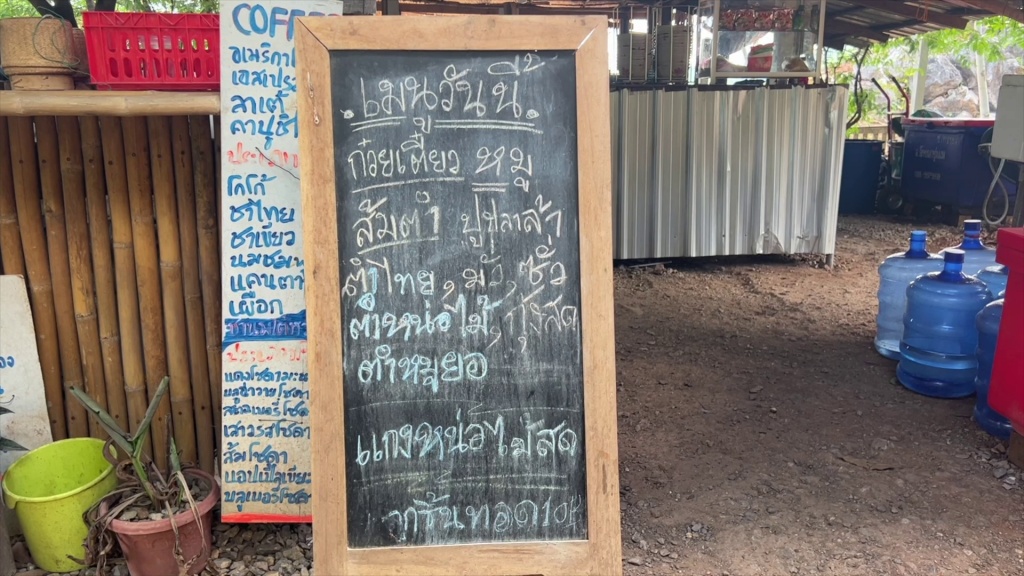 COFFEE
อเมริกา
เอสเปร
ลาเต้
คาปูชิ
โกโก้
ชาไทย
ชาเขียว
นมชมพ
แคนตา
เผือก
ส้มโซดา
แอปเปิ้ลเขียว
บลูเบอรี่โซดา
.เมนูวันนี้.
ก๋วยเตี๋ยว หมู
ส้มตำ ปูปลาล้า
ตำไทย, มั่ว, ซั่ว
ตำหน่อไม้, กุ้งสด
ตำหมูยอ
แกงหน่อไม้สด
ลูกชิ้นทอด10฿